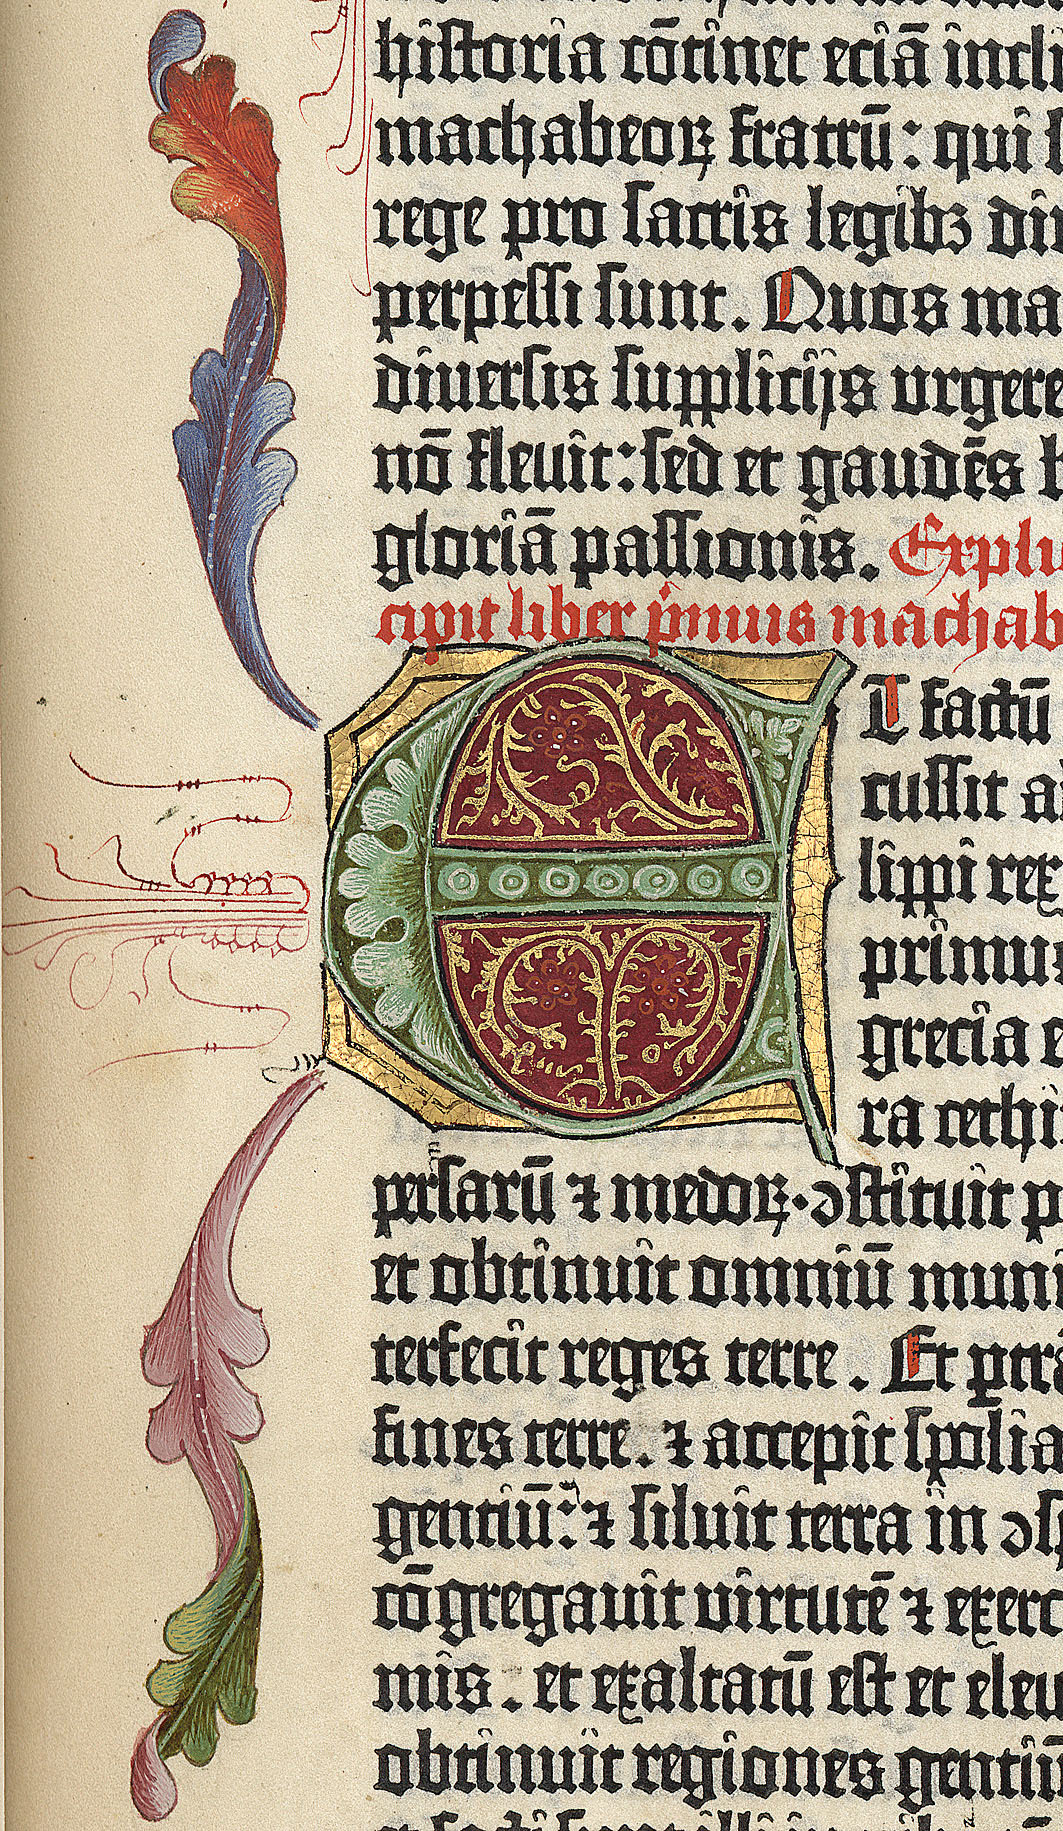 historia cōtinet eciā incli
machabeoꝝ fratrū: qui
rege pro sacris legibꝫ di
perpessi sunt. Quos ma
diuersis supplicijs urgere
nō fleuit: sed et gaudēs
gloriā passionis. Expli
cipit liber p̊muis machab
ET factū
cussit a
lippi rex
primus
grecia e
ra cethi
persarū ⁊ medoꝝ· ꝯstituit p
et obtinuit omniū muni
terfecit reges terre. Et ꝑtrā
fines terre. ⁊ accepit spolia
gentiū: ⁊ siluit terra in ꝯsp
cōgregauit uirtutē ⁊ exerc
mis. et exaltatū est et eleu
obtinuit regiones gentiū